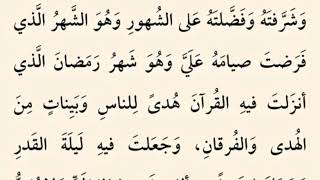 وَشَرَّفتَهُ وَفَضَّلتَهُ عَلى الشُهورِ وَهُوَ الشَّهرُ الَّذي
فَرَضتَ صيامَهُ عَلَيَّ وَهُوَ شَهرُ رَمَضانَ الَّذي
أنزَلتَ فيهِ القُرآنَ هُدىً لِلناسِ وَبَيناتٍ مِنَ
الهُدى وَالفُرقانِ، وَجَعَلتَ فيهِ لَيلَةَ القَدرِ